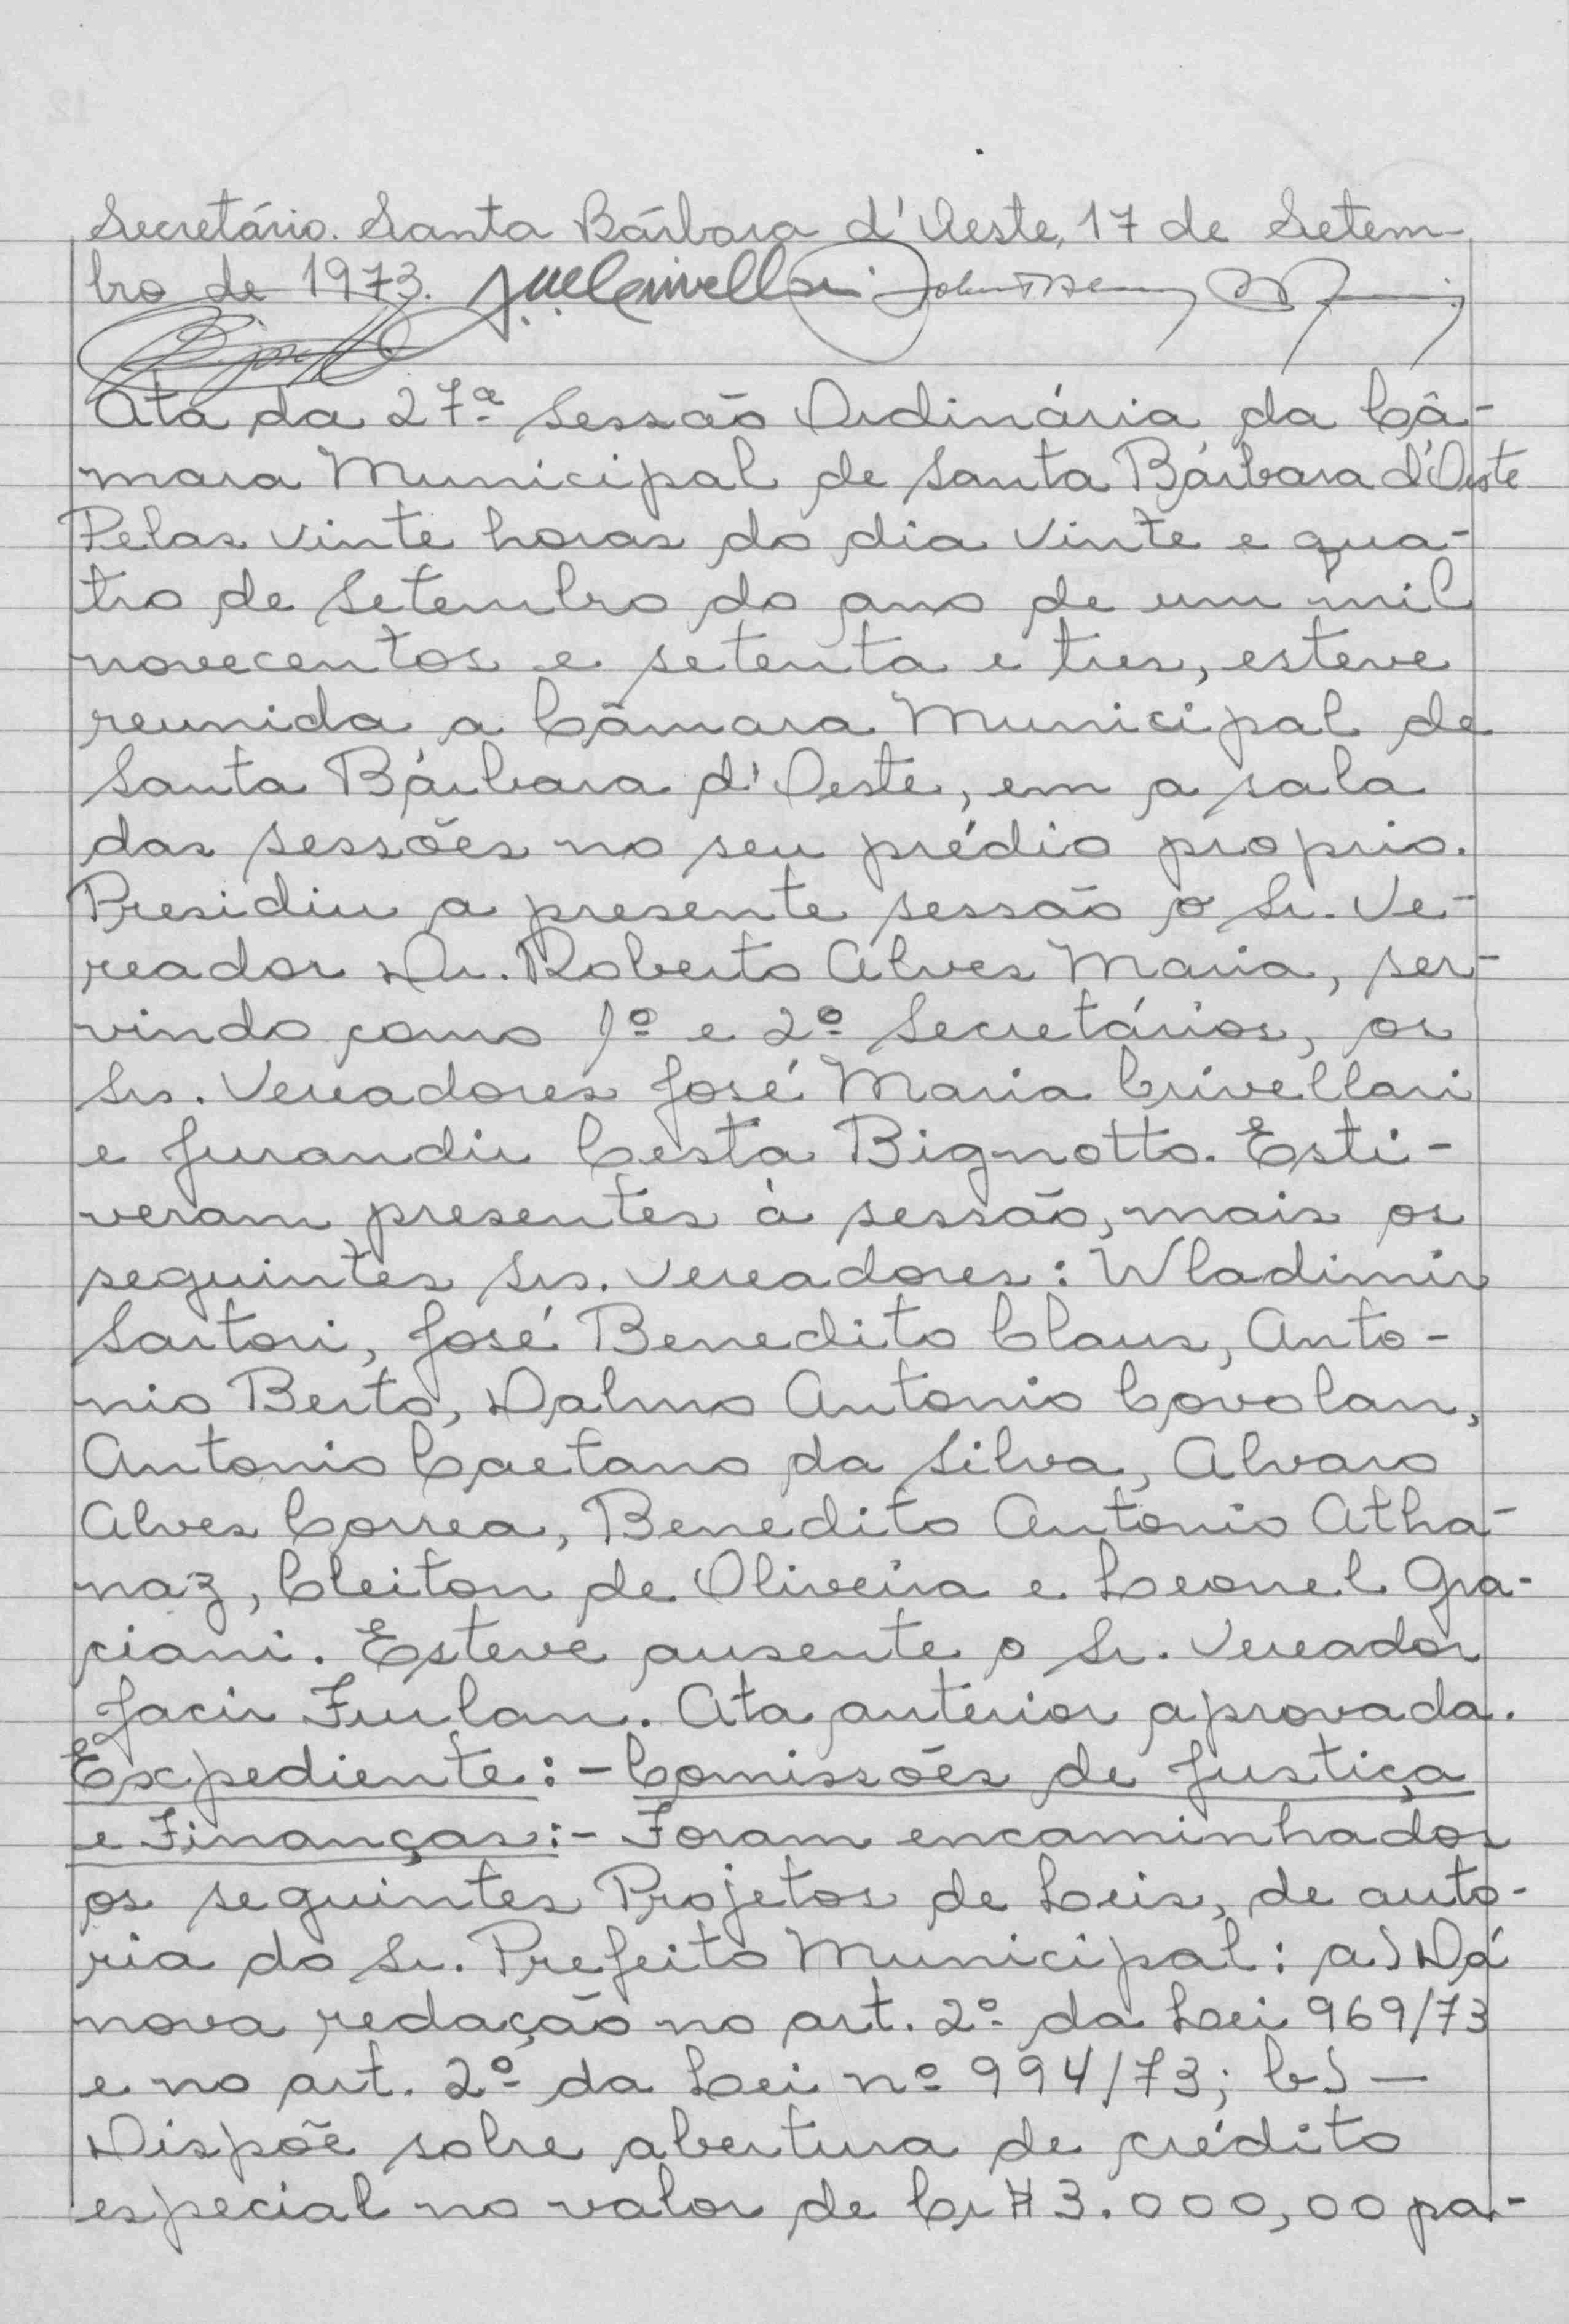 Secretário. Santa Bárbara d'Oeste, 17 de Setem-
bro de 1973.
Ata da 27ª Sessão Ordinária da Câ-
mara Municipal de Santa Bárbara d'Oeste
Pelas vinte horas do dia vinte e qua-
tro de Setembro do ano de um mil
novecentos e setenta e tres, esteve
reunida a Câmara Municipal de
Santa Bárbara d'Oeste, em a sala
das sessões no seu prédio proprio.
Presidiu a presente sessão o Sr. Ve-
reador Dr. Roberto Alves Maria, ser-
vindo como 1º e 2º Secretários, os
Srs. Vereadores José Maria Crivellari
e Jurandir Cesta Bignotto. Esti-
veram presentes à sessão, mais os
seguintes Srs. Vereadores: Wladimir
Sartori, José Benedito Claus, Anto-
nio Berto, Dalmo Antonio Covolan,
Antonio Caetano da Silva, Alvaro
Alves Correa, Benedito Antonio Atha-
naz, Cleiton de Oliveira e Leonel Gra-
ciani. Esteve ausente o Sr. Vereador
Jacir Furlan. Ata anterior aprovada.
Expediente:- Comissões de Justiça
e Finanças:- Foram encaminhados
os seguintes Projetos de Leis, de auto-
ria do Sr. Prefeito Municipal: a) Dá
nova redação no art. 2º da Lei 969/73
e no art. 2º da Lei nº 994/73; b) —
Dispõe sobre abertura de crédito
especial no valor de Cr$ 3.000,00 pa-